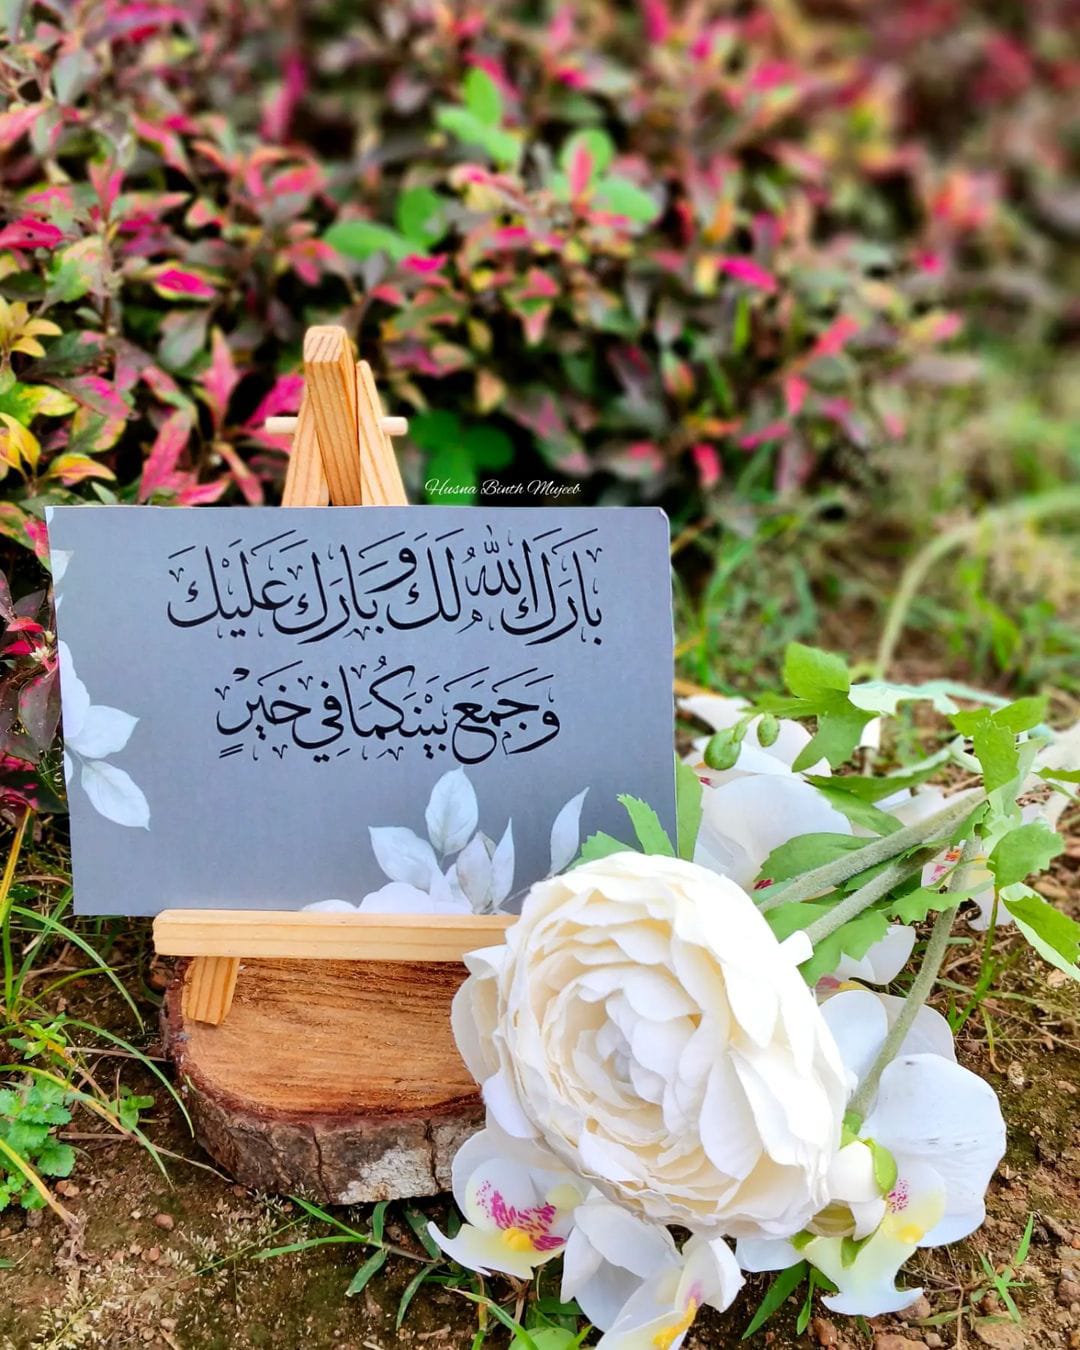 Husna Binth Mujeeb
بَارَكَ اللهُ لَكَ وَبَارَكَ عَلَيْكَ
وَجَمَعَ بَيْنَكُمَا فِي خَيْرٍ